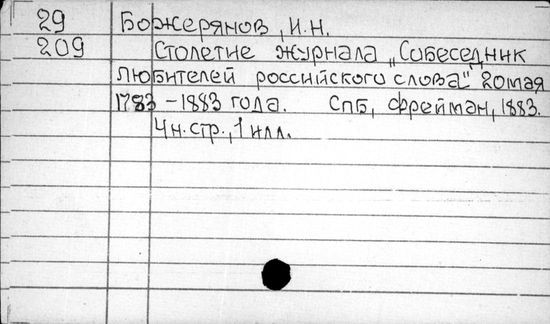 29 Божерянов, И.Н.
209 Столетие журнала „Собеседник
любителей российского слова" 20 мая
1783 – 1883 года. СПБ, Фрейман, 1883.
4 н. стр., 1 илл.